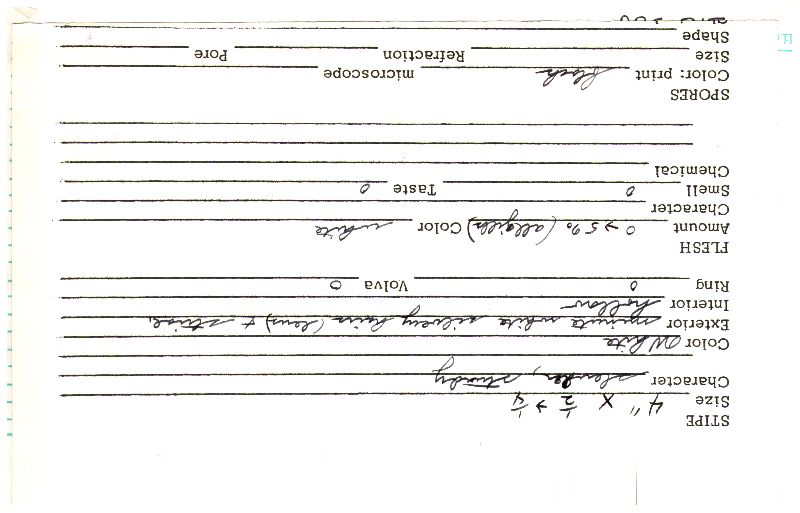 STIPE
Size 4" X 1/2 → 1/4
Character slender, sturdy
Color White
Exterior minute white silvery hairs (lens) + striae.
Interior hollow
Ring 0 Volva 0
FLESH
Amount 0 → 5% (all gills) Color white
Character
Smell 0 Taste 0
Chemical
SPORES
Color: print black microscope
Size Refraction Pore
Shape